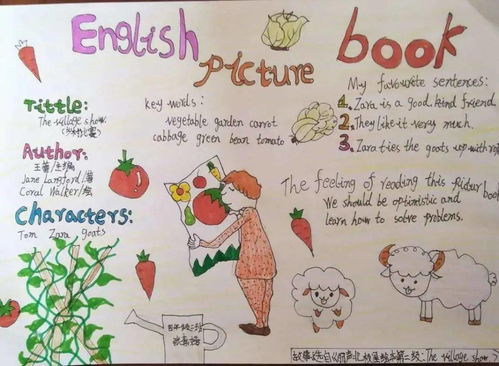 English
Picture
book
Tittle:
The village show
Author:
Jane Langford/著
Coral Walker/绘
Characters:
Tom Zara goats
key words:
vegetable garden carrot
cabbage green bean tomato
My favourite sentences:
1. Zara is a good kind friend
2. They like it very much.
3. Zara ties the goats up with
The feeling of reading this book
We should be optimistic and
learn how to solve problems.
The village show